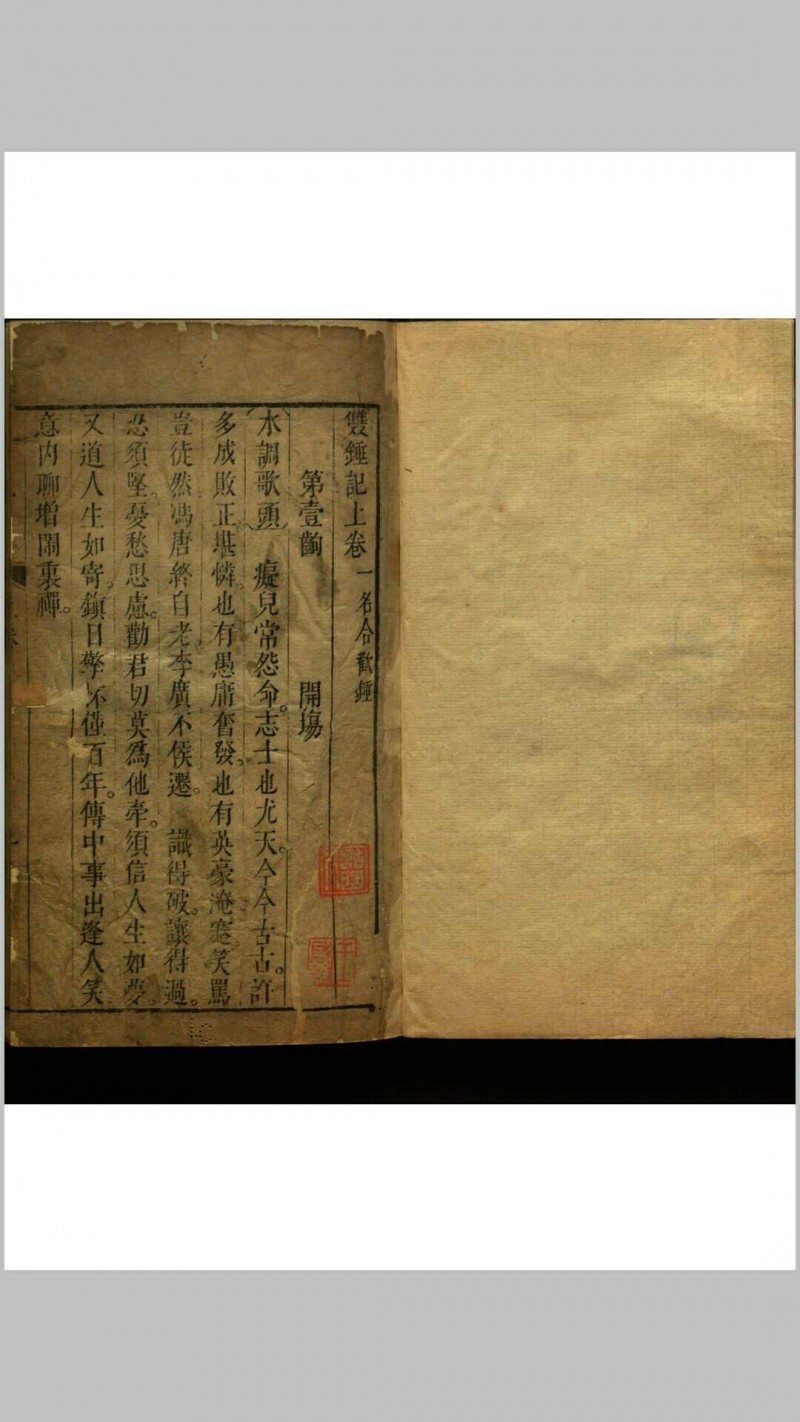 雙錘記上卷 一名合歡錘
第壹齣 開場
水調歌頭 癡兒常怨命。志士也尤天。今今古古。許
多成敗正堪憐。也有愚庸奮發。也有英豪淹蹇。笑罵
豈徒然。馮唐終自老。李廣不侯遷。 識得破。讓得過。
忍須堅。憂愁思慮。勸君切莫爲他牽。須信人生如夢。
又道人生如寄。鎮日擎杯僅百年。傳中事出逢人笑
意內聊增鬧裏禪。